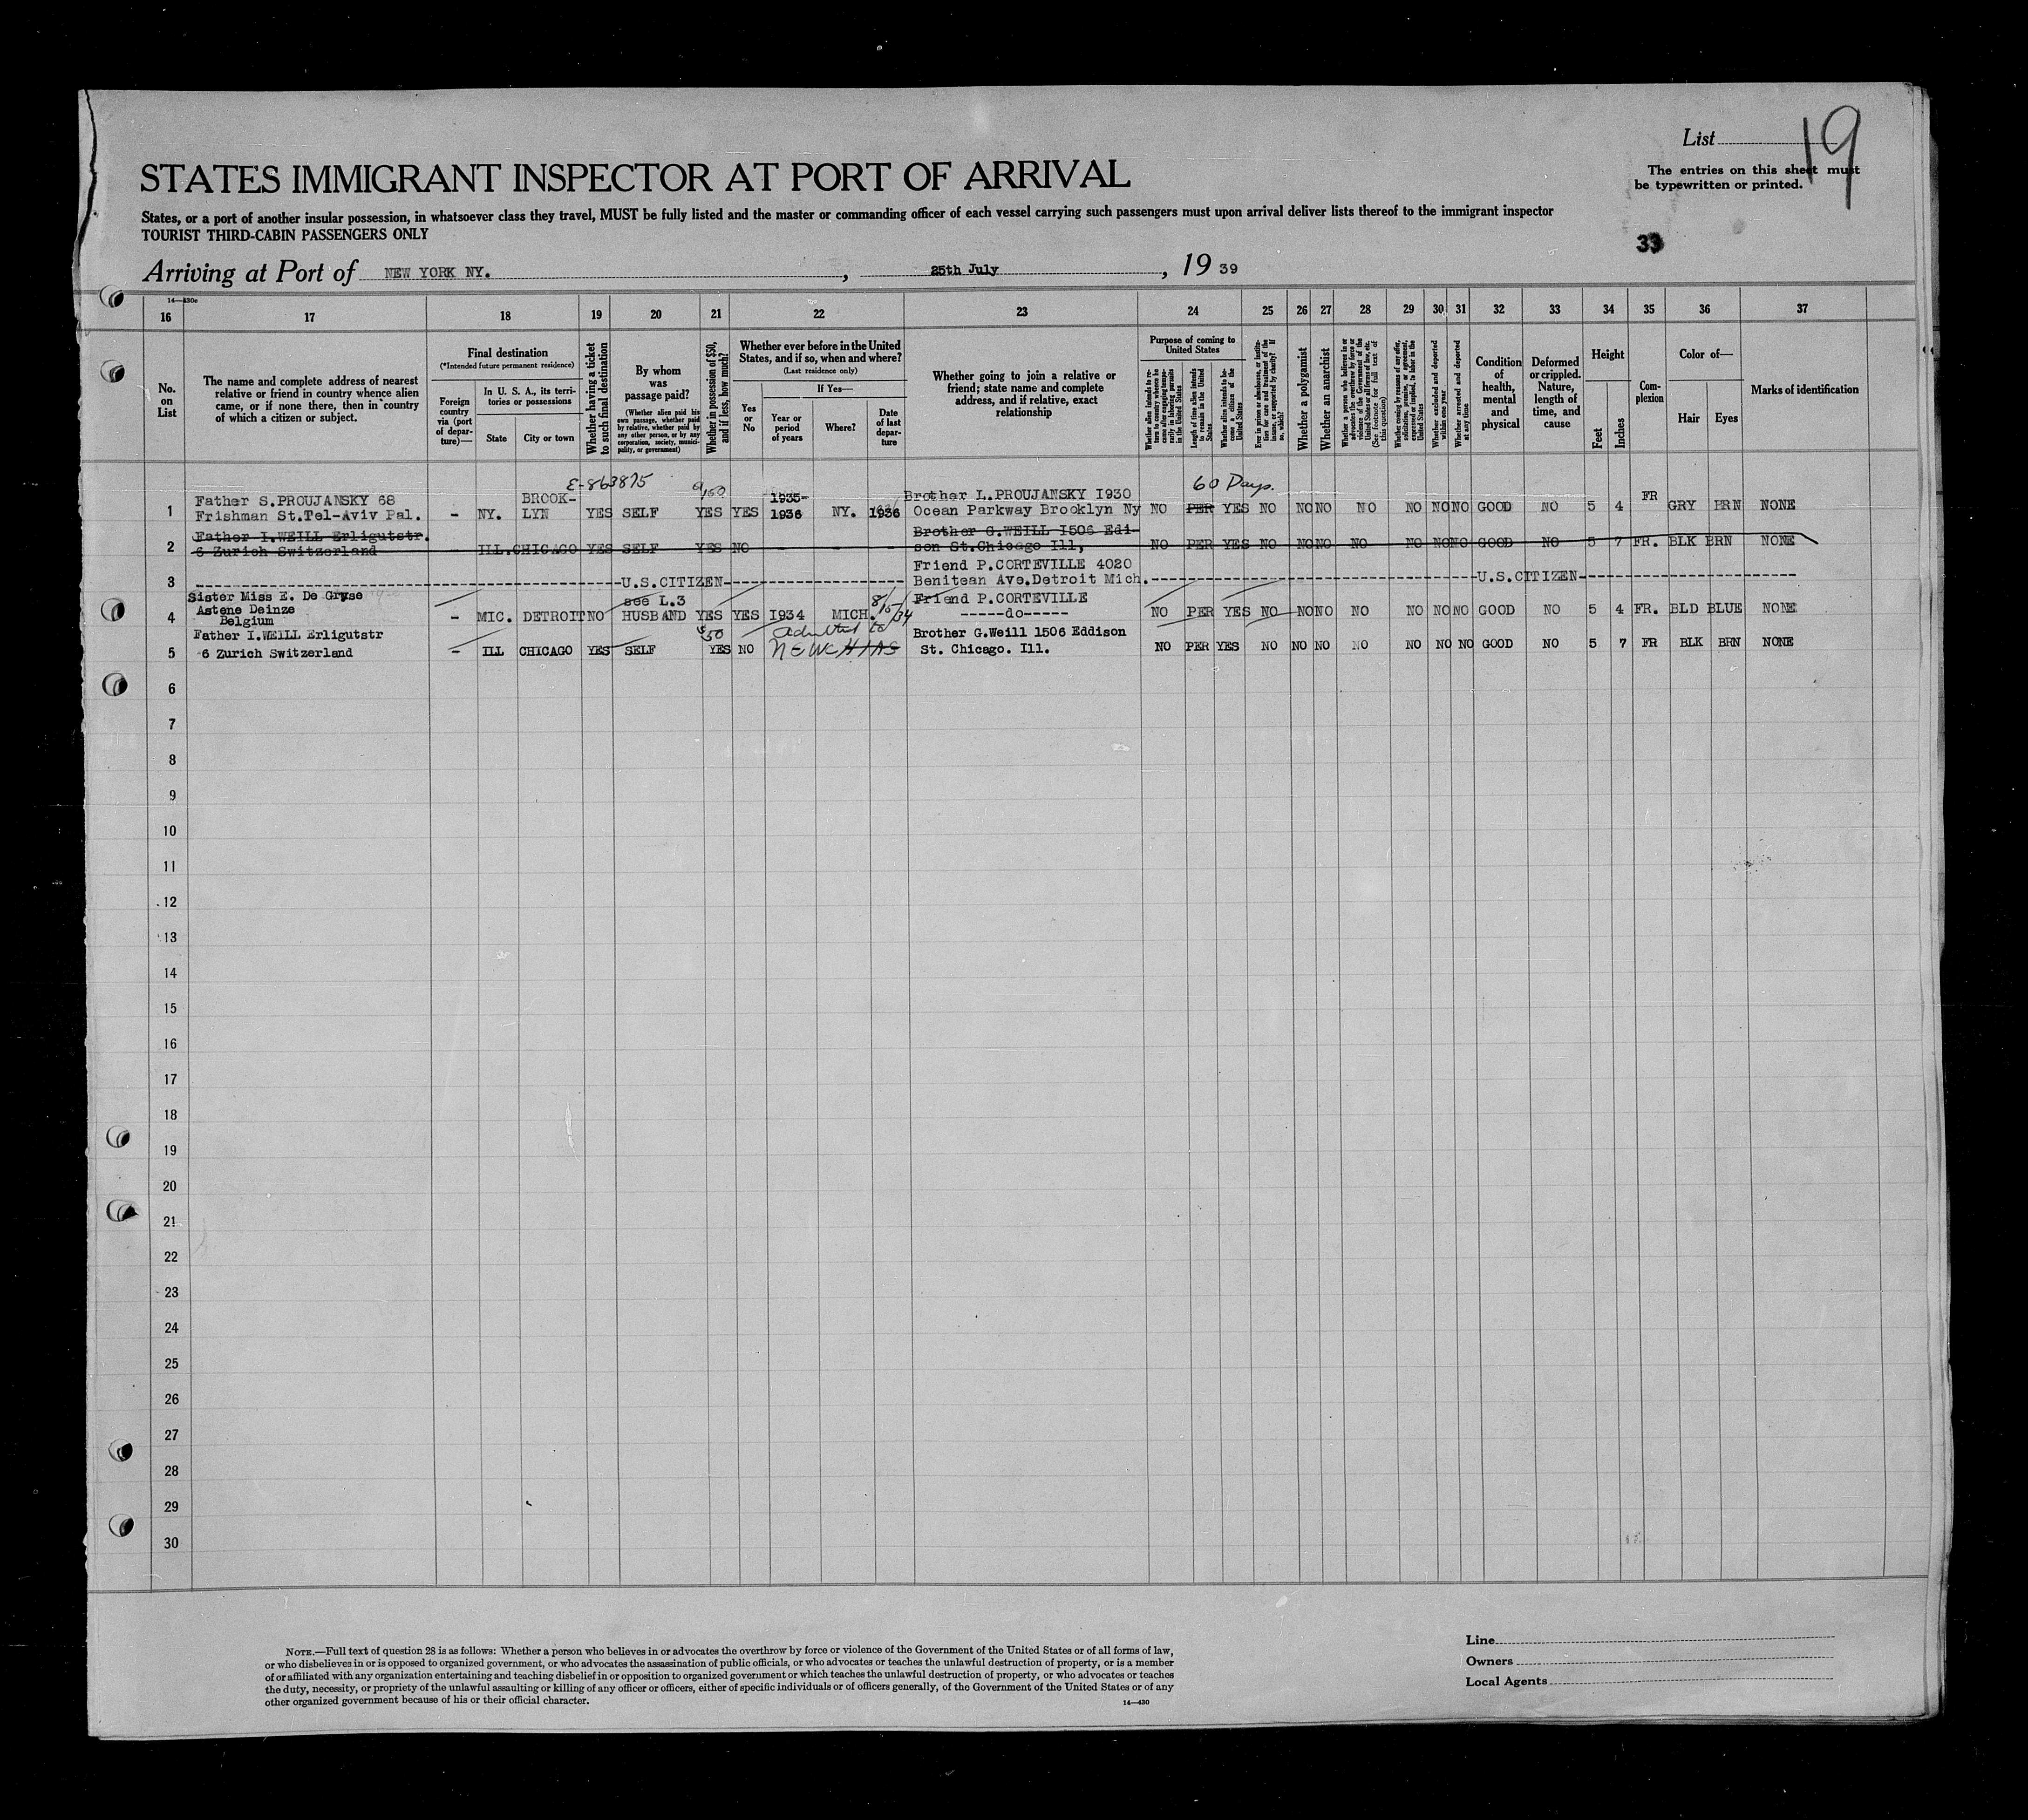 List 19
The entries on this sheet must
be typewritten or printed.
STATES IMMIGRANT INSPECTOR AT PORT OF ARRIVAL
States, or a port of another insular possession, in whatsoever class they travel, MUST be fully listed and the master or commanding officer of each vessel carrying such passengers must upon arrival deliver lists thereof to the immigrant inspector
TOURIST THIRD-CABIN PASSENGERS ONLY
33
Arriving at Port of NEW YORK NY. , 25th July , 19 39
14—430c
16 17 18 19 20 21 22 23 24 25 26 27 28 29 30 31 32 33 34 35 36 37
No. on List
The name and complete address of nearest
relative or friend in country whence alien
came, or if none there, then in country
of which a citizen or subject.
Final destination
(*Intended future permanent residence)
Foreign
country
via (port
of depar-
ture)—
In U. S. A., its terri-
tories or possessions
State
City or town
Whether having a ticket
to such final destination
By whom
was
passage paid?
(Whether alien paid his
own passage, whether paid
by relative, whether paid by
any other person, or by any
corporation, society, munici-
pality, or government)
Whether in possession of $50,
and if less, how much?
Whether ever before in the United
States, and if so, when and where?
(Last residence only)
Yes
or
No
If Yes—
Year or
period
of years
Where?
Date
of last
depar-
ture
Whether going to join a relative or
friend; state name and complete
address, and if relative, exact
relationship
Purpose of coming to
United States
Length of time alien intends
to remain in the United
States
Whether alien intends to be-
come a citizen of the
United States
Whether a polygamist
Whether an anarchist
(See footnote for full text of
this question)
Whether excluded and deported
within one year
Whether arrested and deported
at any time
Condition
of
health,
mental
and
physical
Deformed
or crippled.
Nature,
length of
time, and
cause
Height
Feet
Inches
Com-
plexion
Color of—
Hair
Eyes
Marks of identification
E-863875 60 Days.
1 Father S.PROUJANSKY 68
Frishman St.Tel-Aviv Pal. - NY. BROOK-
LYN YES SELF YES YES 1935-
1936 NY. 1936 Brother L.PROUJANSKY I930
Ocean Parkway Brooklyn Ny NO PER YES NO NO NO NO NO NO NO GOOD NO 5 4 FR GRY BRN NONE
2 Father I.WEILL Erligutstr.
6 Zurich Switzerland - ILL.CHICAGO YES SELF YES NO - - - Brother G.WEILL I506 Edi-
son St.Chicago Ill, NO PER YES NO NO NO NO NO NO NO GOOD NO 5 7 FR. BLK BRN NONE
3 U.S.CITIZEN Friend P.CORTEVILLE 4020
Benitean Ave.Detroit Mich. U.S.CITIZEN
4 Sister Miss E. De Gryse
Astene Deinze
Belgium - MIC. DETROIT NO see L.3
HUSBAND YES YES I934 MICH. Friend P.CORTEVILLE
-----do----- NO PER YES NO NO NO NO NO NO NO GOOD NO 5 4 FR. BLD BLUE NONE
5 Father I.WEILL Erligutstr
6 Zurich Switzerland - ILL CHICAGO YES SELF $50
YES NO admitted Brother G.Weill 1506 Eddison
St. Chicago. Ill. NO PER YES NO NO NO NO NO NO NO GOOD NO 5 7 FR BLK BRN NONE
6
7
8
9
10
11
12
13
14
15
16
17
18
19
20
21
22
23
24
25
26
27
28
29
30
NOTE.—Full text of question 28 is as follows: Whether a person who believes in or advocates the overthrow by force or violence of the Government of the United States or of all forms of law,
or who disbelieves in or is opposed to organized government, or who advocates the assassination of public officials, or who advocates or teaches the unlawful destruction of property, or is a member
of or affiliated with any organization entertaining and teaching disbelief in or opposition to organized government or which teaches the unlawful destruction of property, or who advocates or teaches
the duty, necessity, or propriety of the unlawful assaulting or killing of any officer or officers, either of specific individuals or of officers generally, of the Government of the United States or of any
other organized government because of his or their official character.
14—430
Line
Owners
Local Agents